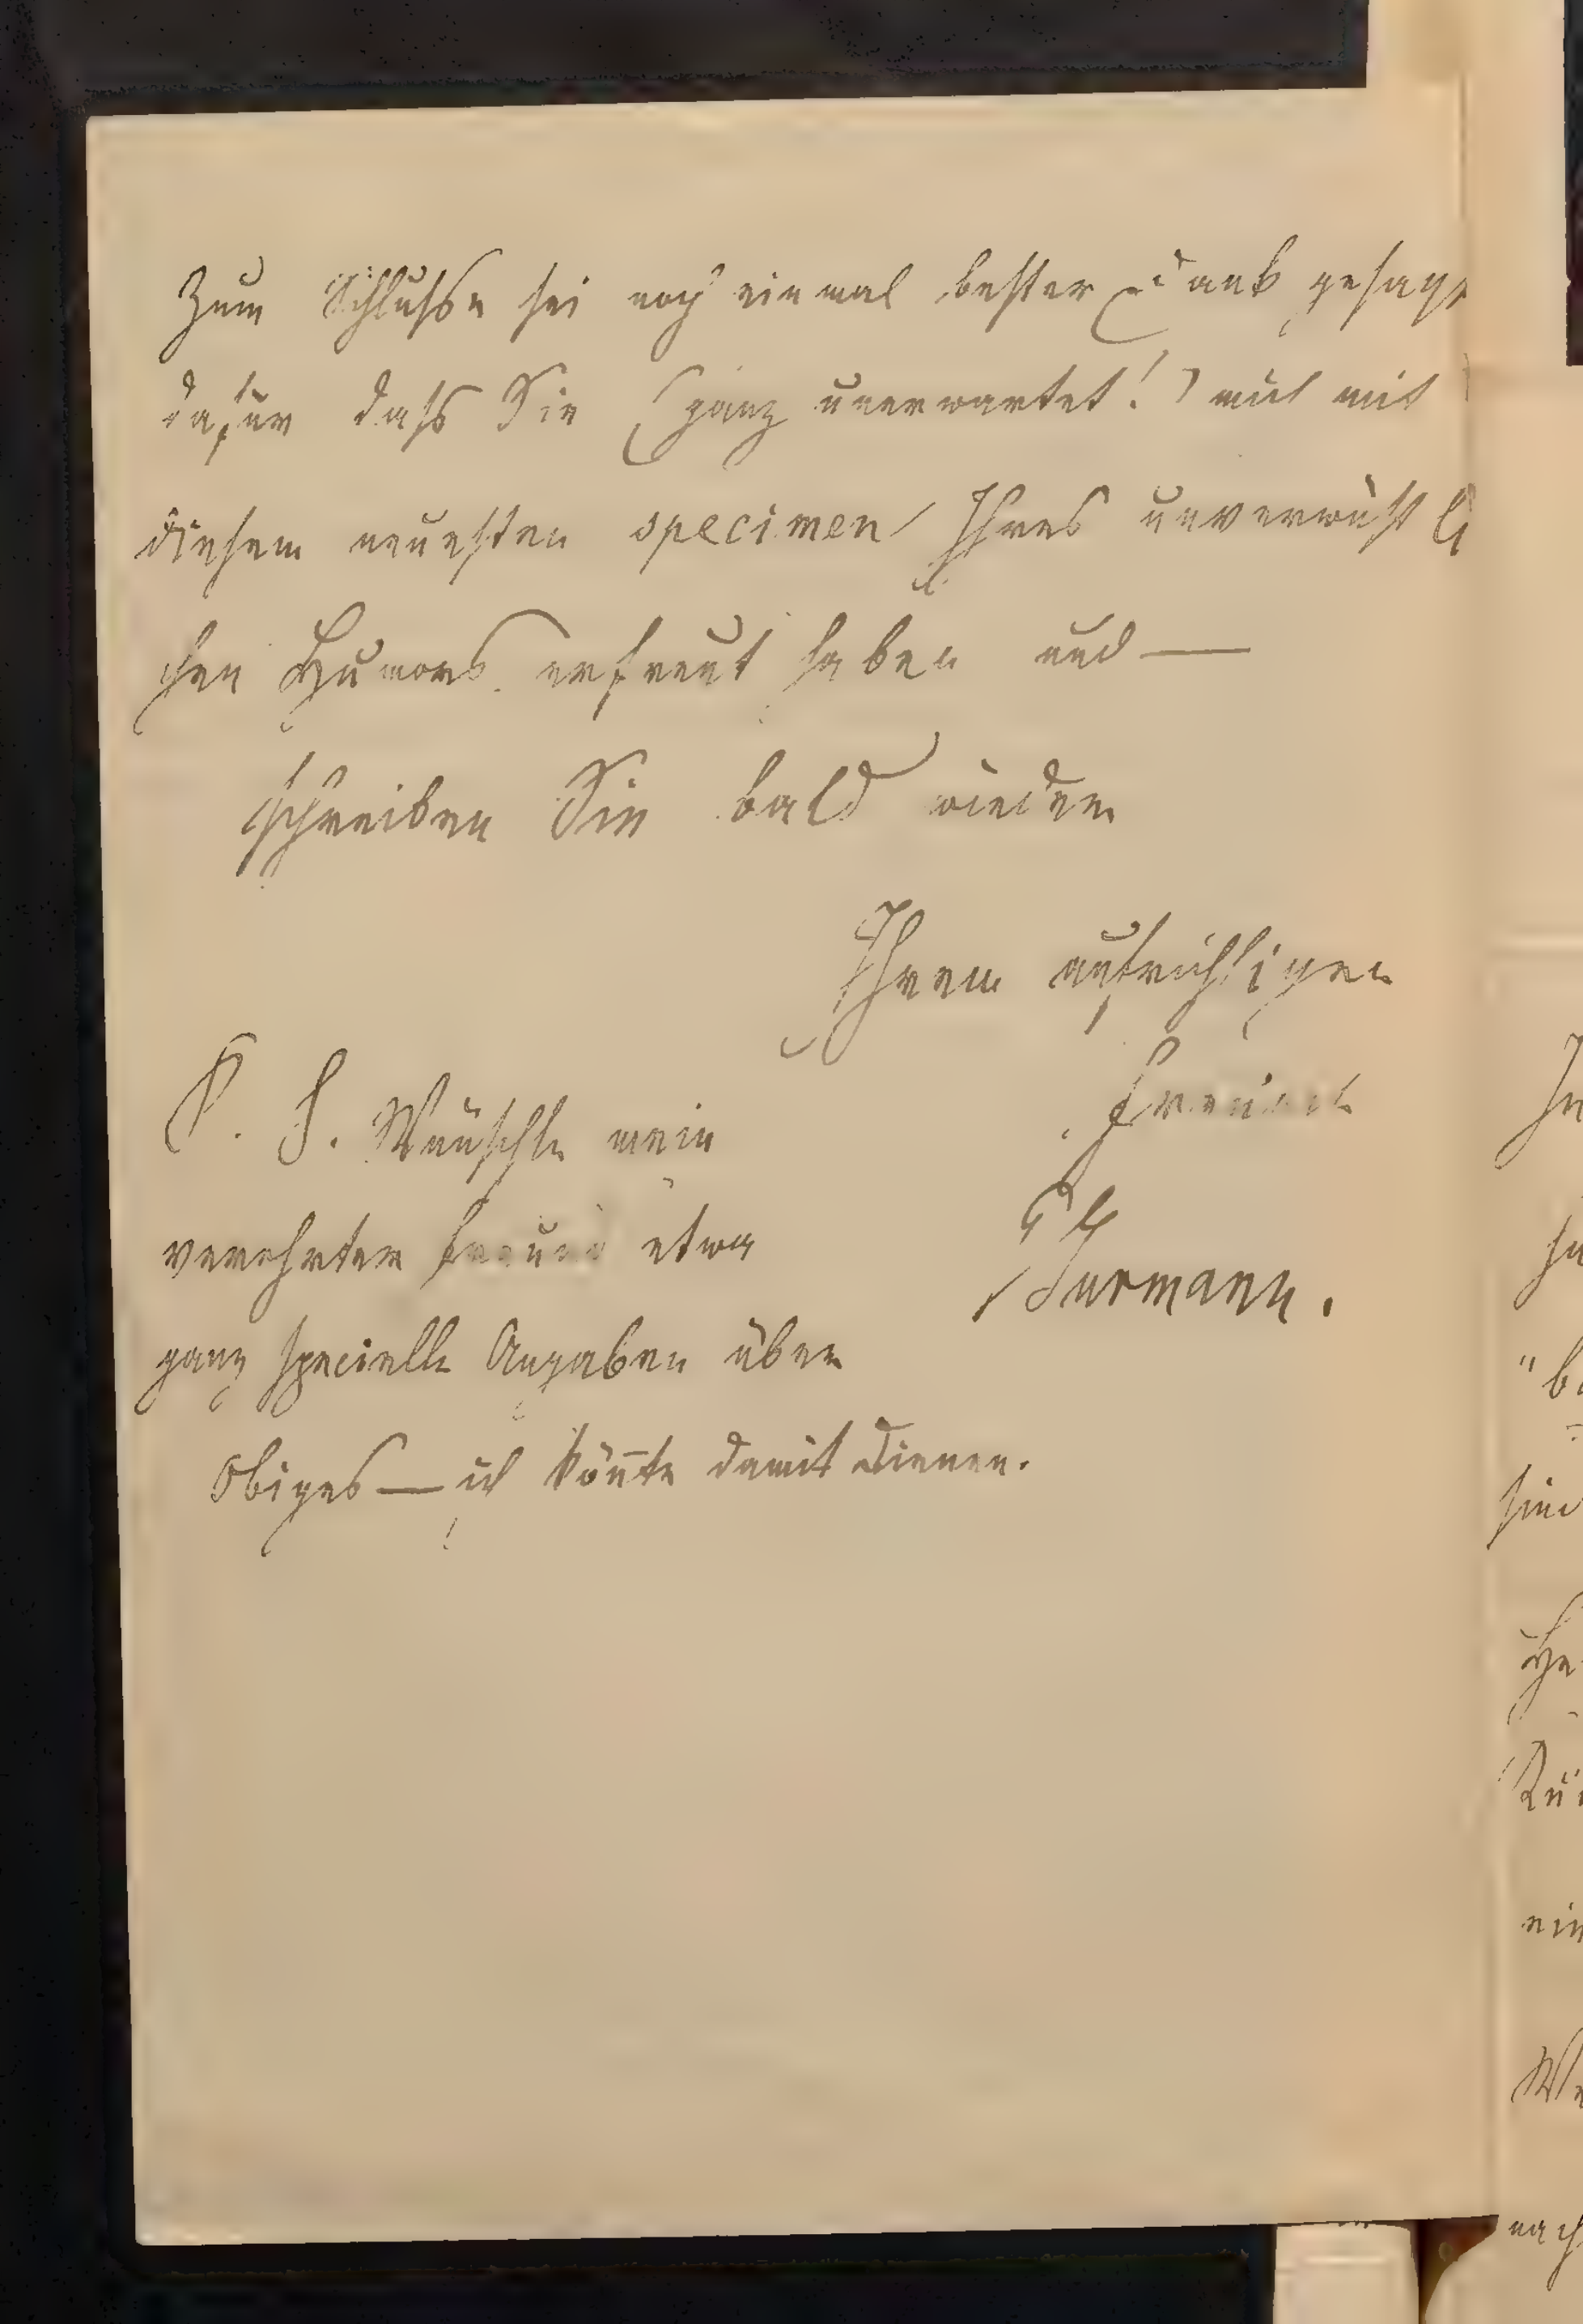 Zum Schlusse sei noch einmal bester Dank gesagt
dafür dass Sie (ganz unerwartet!) mich mit
diesem neuesten specimen Ihres unverwüstli
chen Humors erfreut haben und —
schreiben Sie bald wieder
Ihrem aufrichtigen
Freunde
Burmann.
P. S. Wünscht mein
verehrter Freund etwa
ganz specielle Angaben über
Obiges — ich könnte damit dienen.